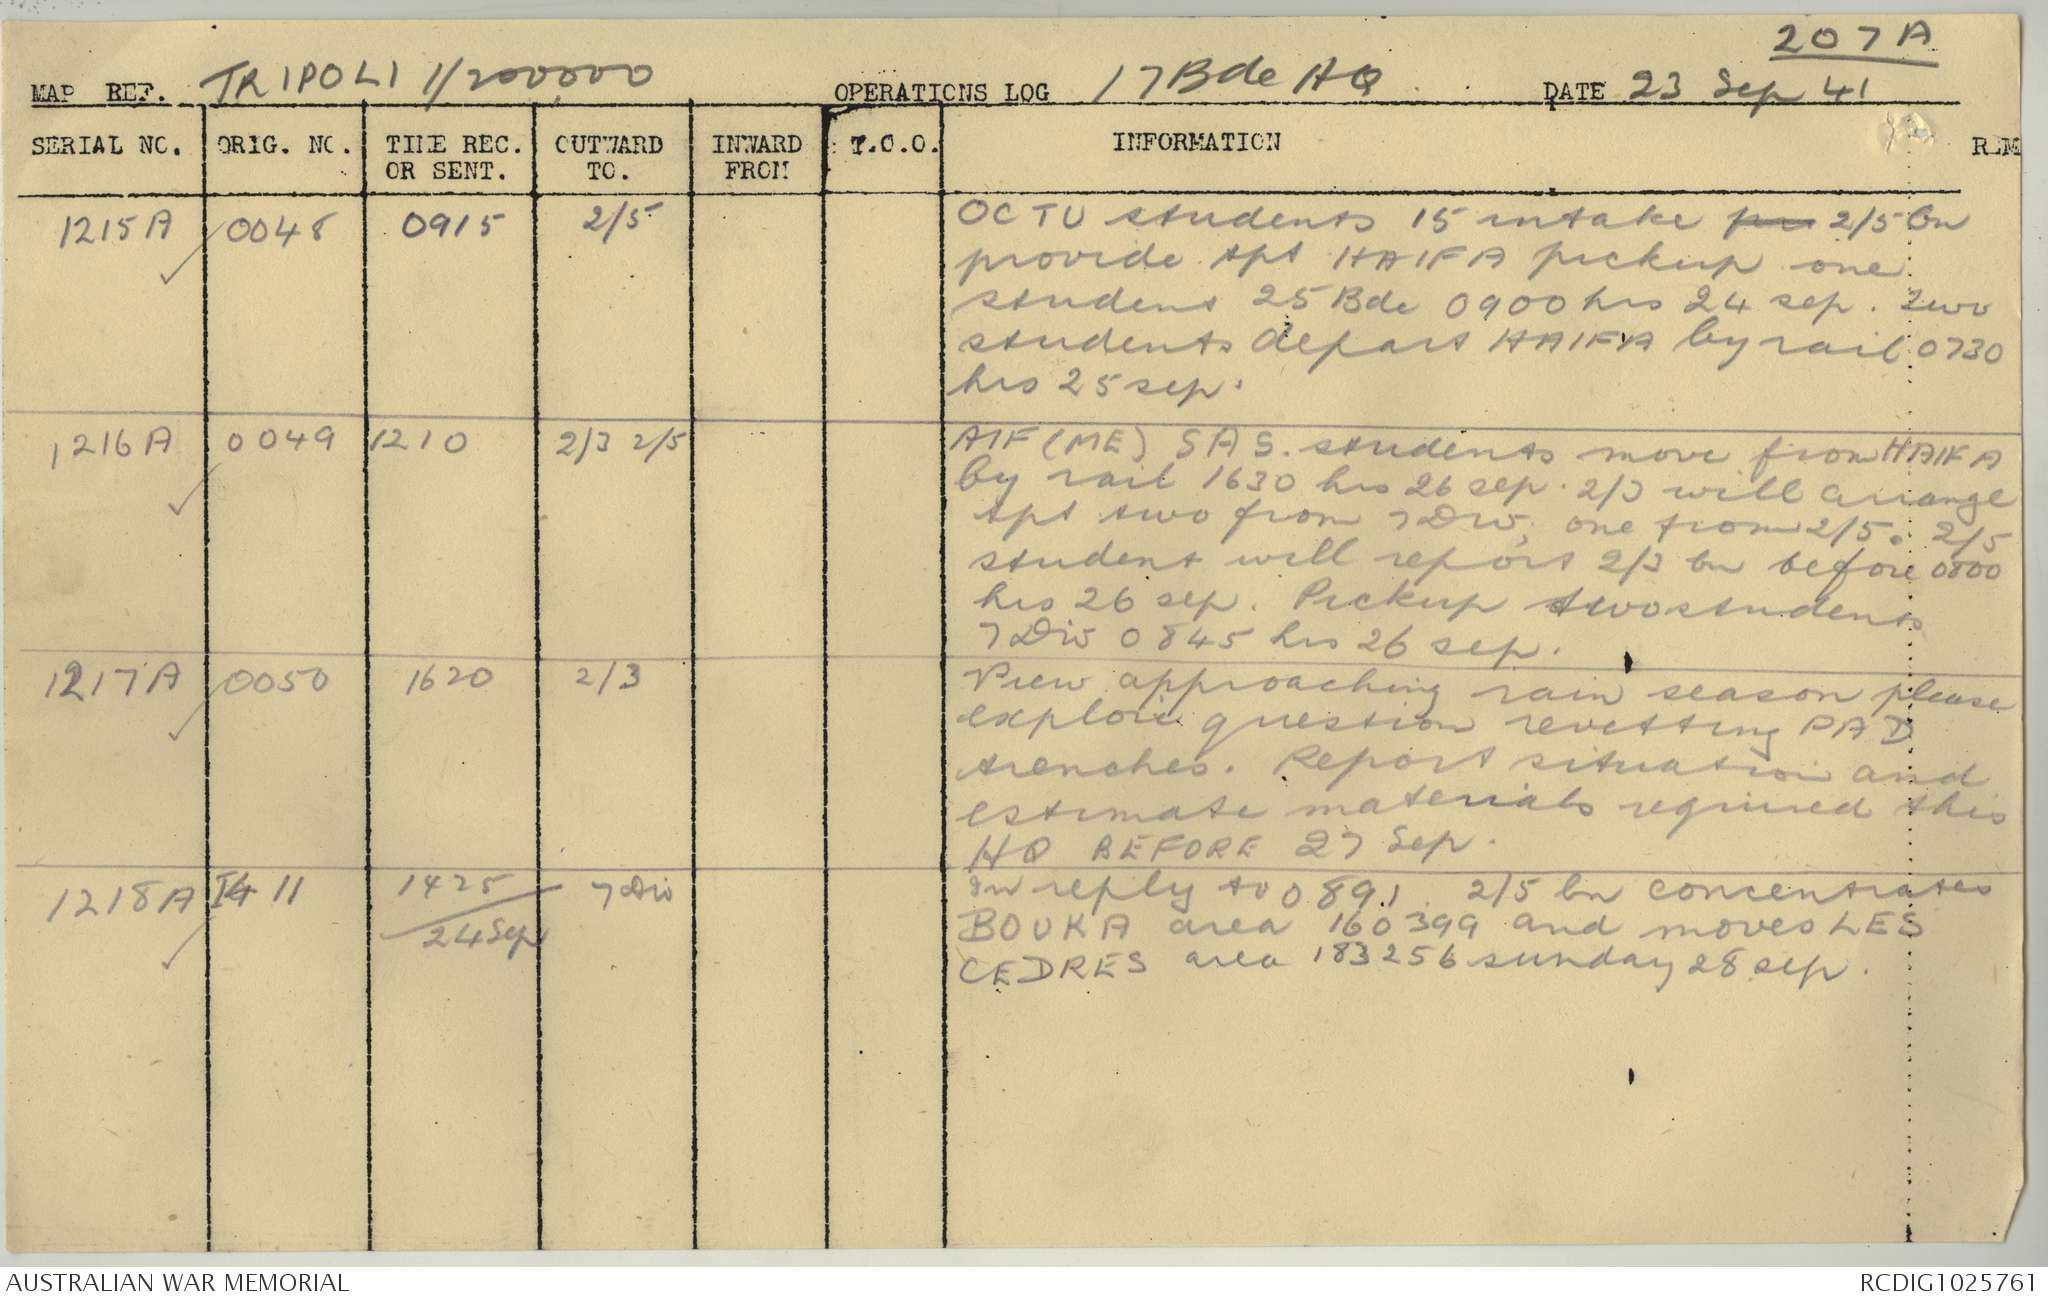 207A
MAP REF. TRIPOLI 1/200,000 OPERATIONS LOG 17 Bde HQ DATE 23 Sep 41
SERIAL NO. ORIG. NO. TIME REC. OR SENT. OUTWARD TO. INWARD FROM T.O.O. INFORMATION REM
1215A 0048 0915 2/5 OCTU students 15 intake 2/5 bn
provide tpt HAIFA pickup one
student 25 Bde 0900 hrs 24 sep. Two
students depart HAIFA by rail 0730
hrs 25 sep.
1216A 0049 1210 2/3 2/5 AIF (ME) SAS. students move from HAIFA
by rail 1630 hrs 26 sep. 2/3 will arrange
tpt two from 7 Div, one from 2/5. 2/5
student will report 2/3 bn before 0800
hrs 26 sep. Pickup two students
7 Div 0845 hrs 26 sep.
1217A 0050 1620 2/3 View approaching rain season please
explore question revetting PAD
trenches. Report situation and
estimate materials required this
HQ BEFORE 27 Sep.
1218A I4 11 1425 7 Div In reply to 0891. 2/5 bn concentrates
24 Sep BOUKA area 160399 and moves LES
CEDRES area 183256 sunday 28 sep.
AUSTRALIAN WAR MEMORIAL RCDIG1025761